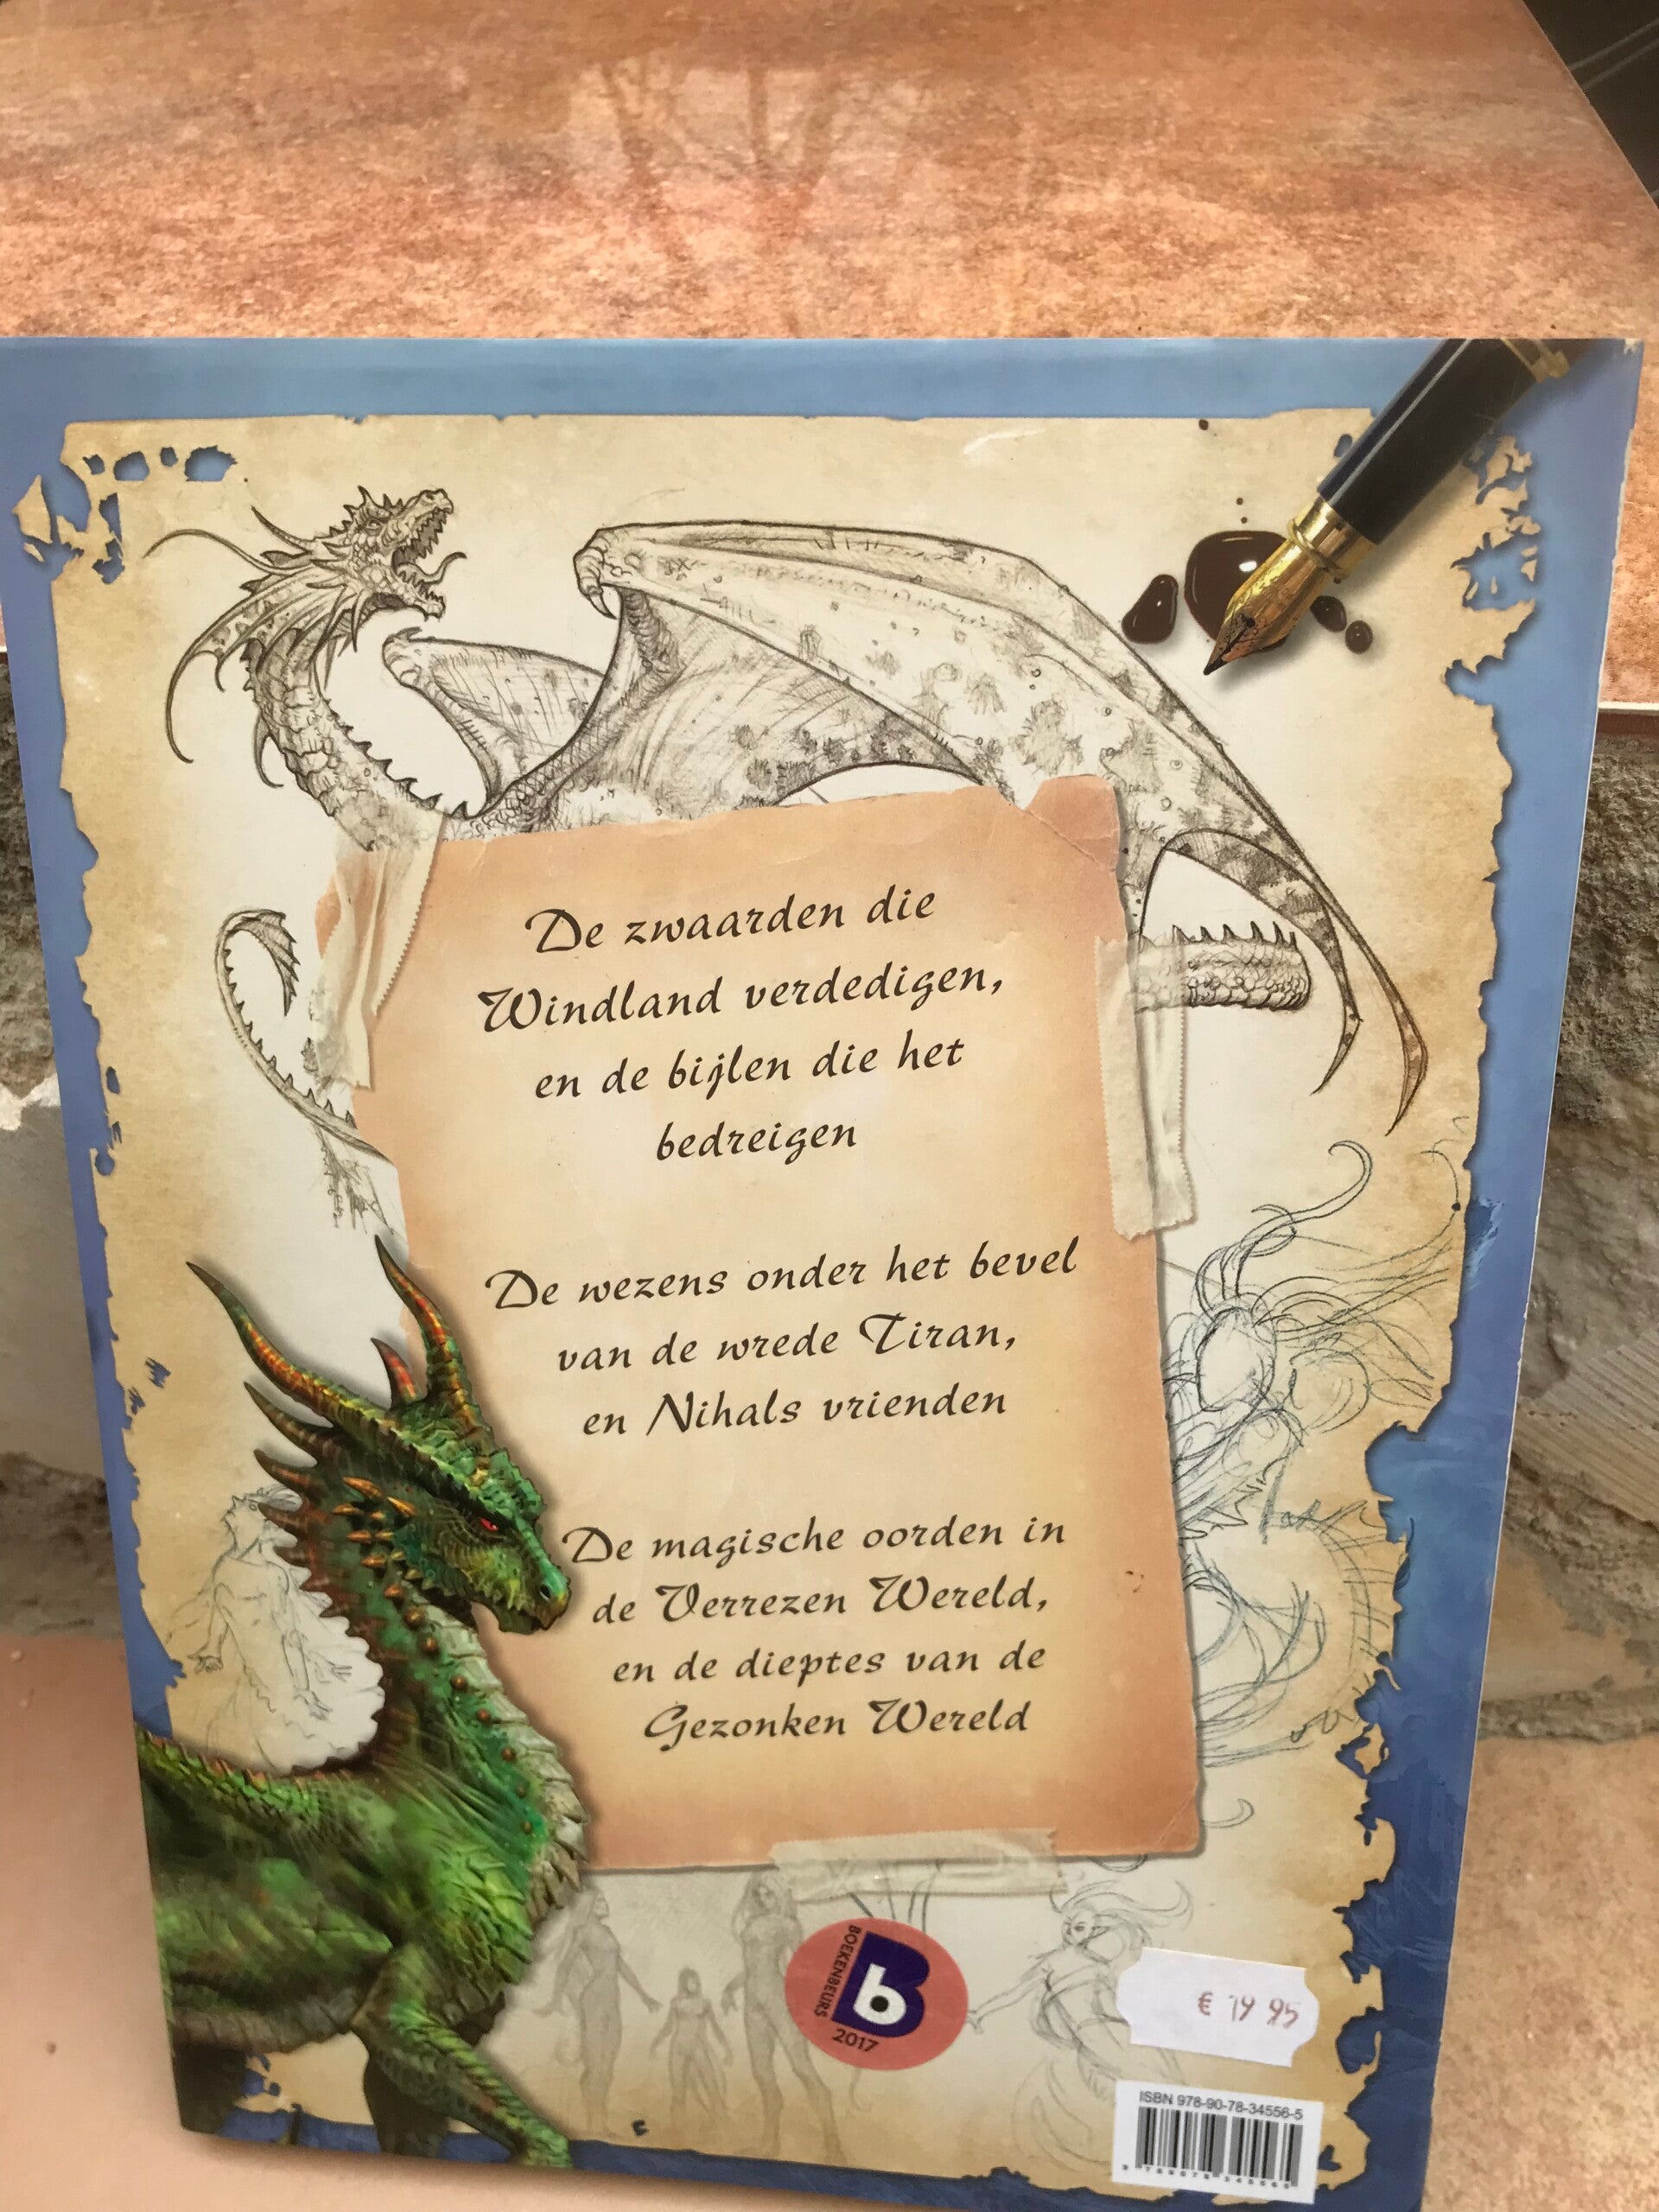 De zwaarden die
Windland verdedigen,
en de bijlen die het
bedreigen
De wezens onder het bevel
van de wrede Tiran,
en Nihals vrienden
De magische oorden in
de Verrezen Wereld,
en de dieptes van de
Gezonken Wereld
BOEKENBEURS
2017
€ 19 95
ISBN 978-90-78-34556-5
9 789078 345565